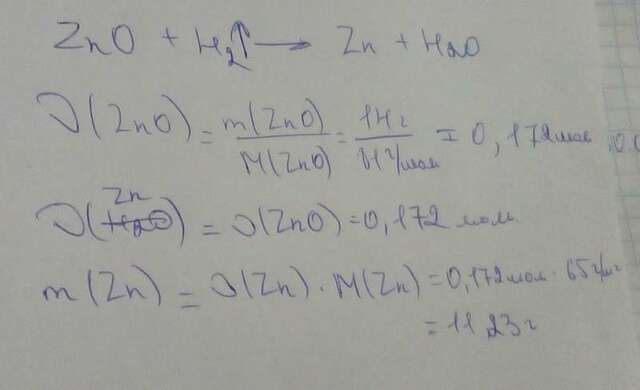 ZnO + H₂↑ → Zn + H₂O
ν(ZnO) = m(ZnO) / M(ZnO) = 14г / 81г/моль = 0,172моль
ν(Zn) = ν(ZnO) = 0,172 моль
m(Zn) = ν(Zn) · M(Zn) = 0,172моль · 65г/
= 11,23г